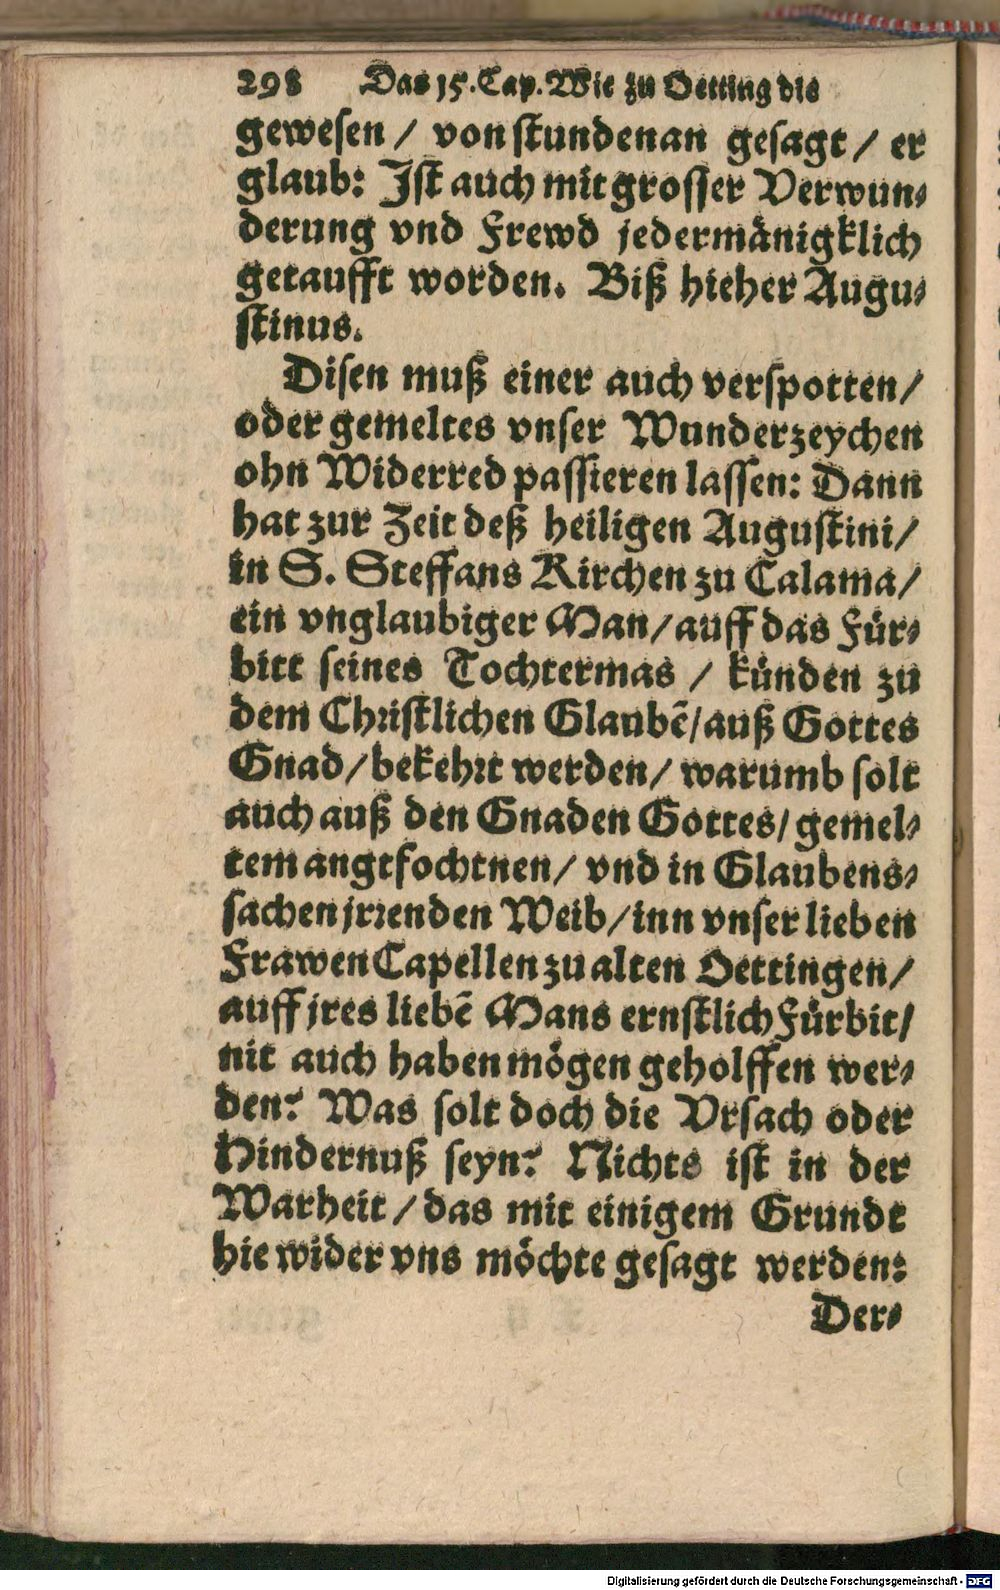 298 Das 15. Cap. Wie zu Oetting die
gewesen / von stunden an gesagt / er
glaub: Jst auch mit grosser Verwun-
derung vnd Frewd jedermänigklich
getaufft worden. Biß hieher Augu-
stinus.
Disen muß einer auch verspotten /
oder gemeltes vnser Wunderzeychen
ohn Widerred passieren lassen: Dann
hat zur Zeit deß heiligen Augustini /
in S. Steffans Kirchen zu Calama /
ein vnglaubiger Man / auff das Für-
bitt seines Tochtermas / künden zu
dem Christlichen Glaubẽ / auß Gottes
Gnad / bekehrt werden / warumb solt
auch auß den Gnaden Gottes / gemel-
tem angtfochtnen / vnd in Glaubens-
sachen jrrenden Weib / inn vnser lieben
Frawen Capellen zu alten Oettingen /
auff jres liebẽ Mans ernstlich Fürbit /
nit auch haben mögen geholffen wer-
den? Was solt doch die Vrsach oder
Hindernuß seyn? Nichts ist in der
Warheit / das mit einigem Grundt
hie wider vns möchte gesagt werden:
Der-
Digitalisierung gefördert durch die Deutsche Forschungsgemeinschaft - DFG